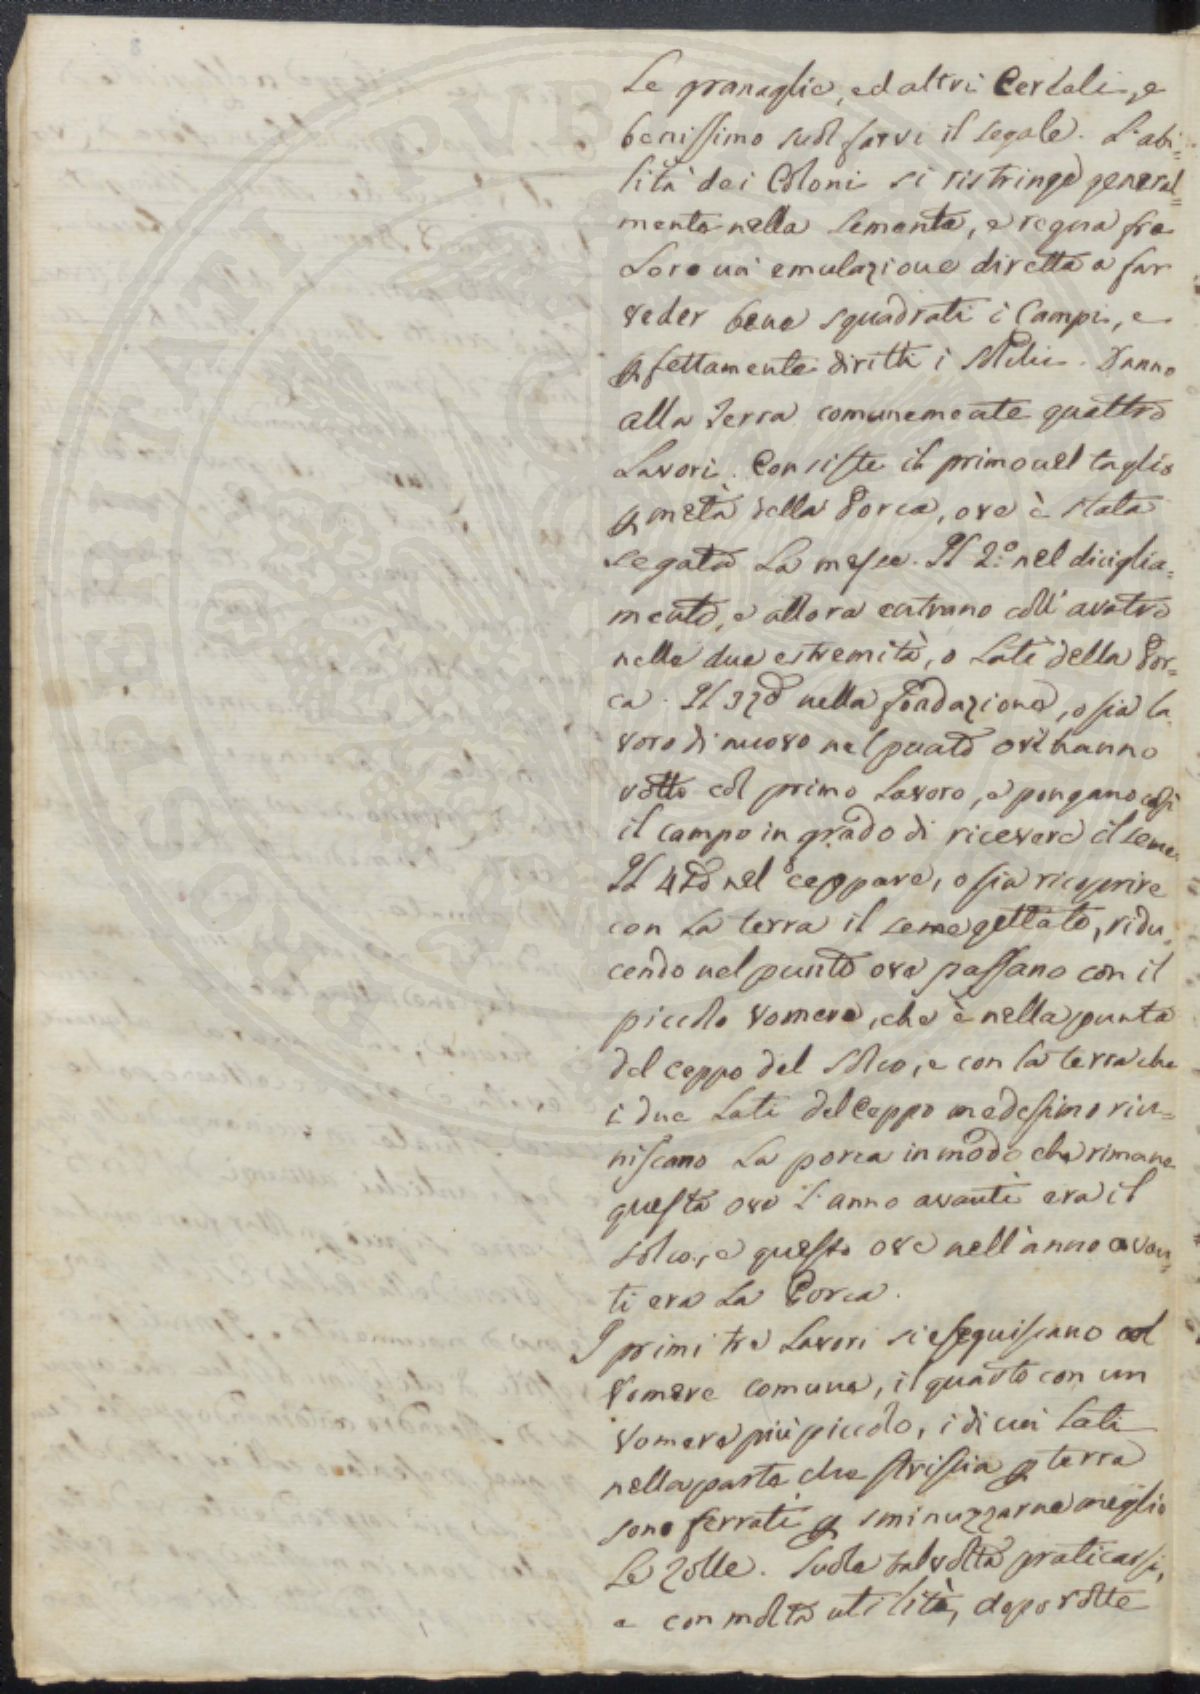 Le granaglie, ed altri Cereali, e
benissimo suol farvi il segale. L'abi=
lità dei Coloni si ristringe general=
mente nella sementa, e regna fra
Loro un' emulazione diretta a far
veder bene squadrati i Campi, e
pfettamente diritti i Solchi. Danno
alla terra comunemente quattro
Lavori. Consiste il primo nel taglio
p metà della Porca, ove è stata
segata La messe. Il 2.° nel diciglia=
mento, e allora entrano coll' aratro
nelle due estremità, o Lati della Por=
ca. Il 3zo nella fondazione, o sia la
voro di nuovo nel punto ove hanno
rotto col primo Lavoro, e pongano così
il campo in grado di ricevere il seme.
Il 4to nel ceppare, o sia ricoprire
con La terra il seme gettato, ridu=
cendo nel punto ove passano con il
piccolo vomere, che è nella punta
del ceppo del solco, e con la terra che
i due Lati del Ceppo medesimo riu=
niscano La porca in modo che rimane
questa ove L'anno avanti era il
solco, e questo ove nell'anno avan=
ti era La Porca.
I primi tre Lavori si eseguiscano col
vomere comune, il quarto con un
vomere più piccolo, i di cui Lati
nella parte che striscia p terra
sono ferrati p sminuzzarne meglio
Le zolle. Suole talvolta praticarsi,
e con molta utilità, dopo rotte
SPERITATI PVB